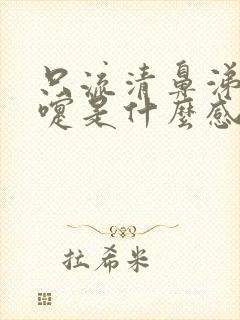 只流清鼻涕
嚏是什麼感
拉希米